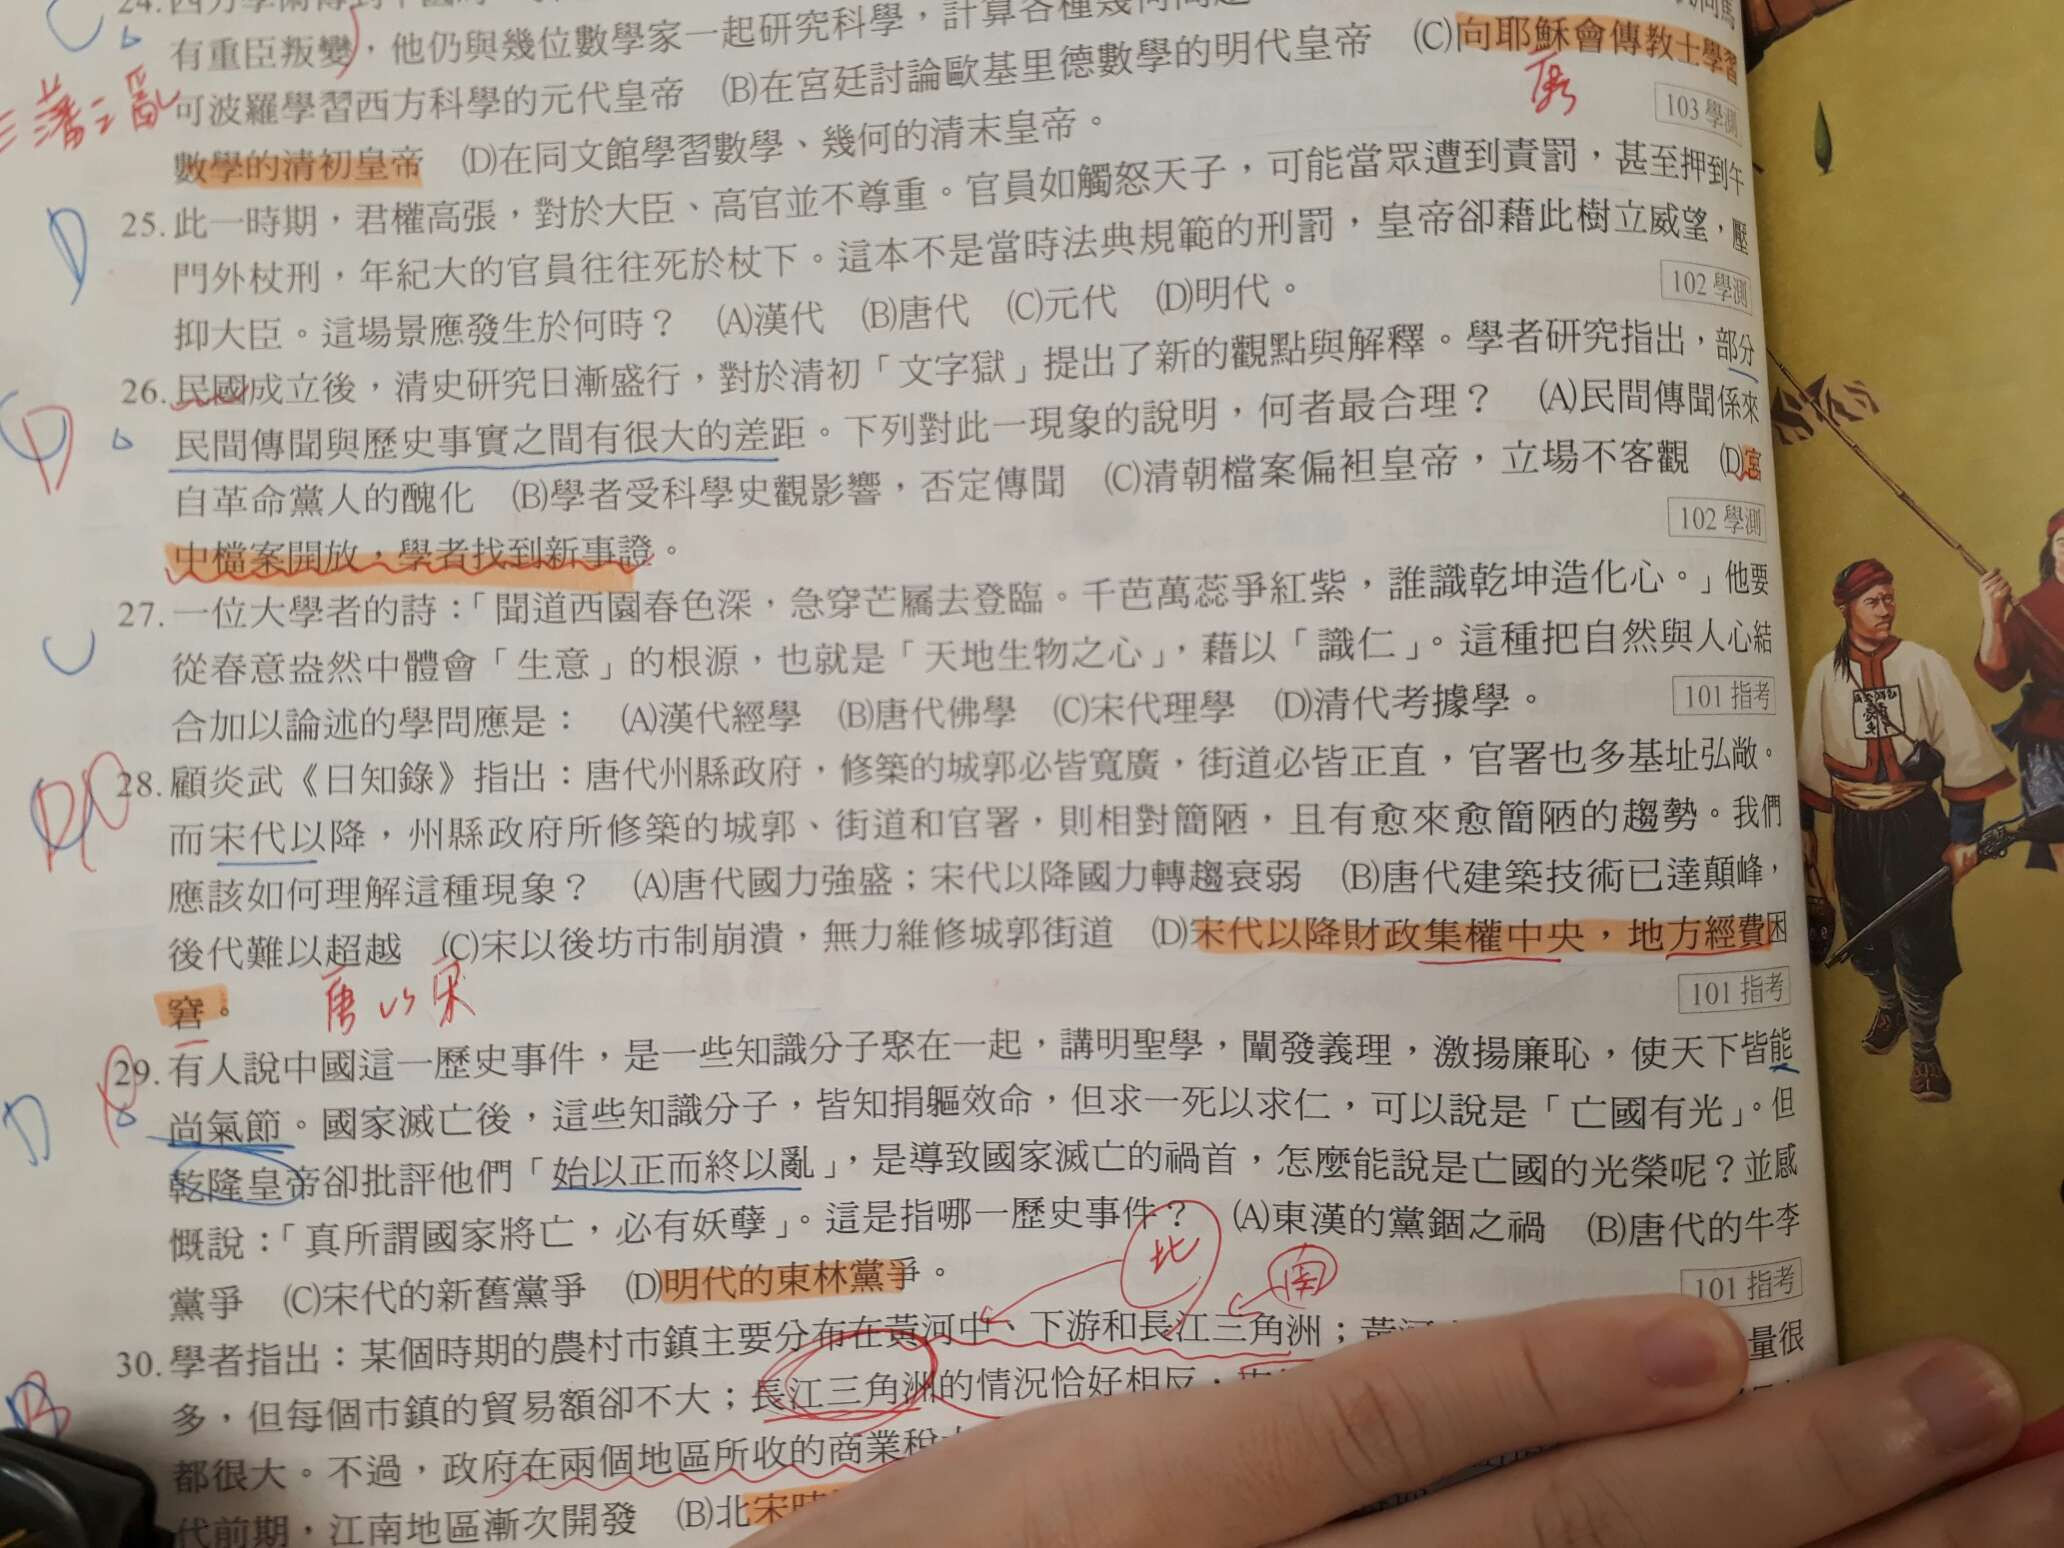 有重臣叛變，他仍與幾位數學家一起研究科學，計算各種幾何問題
可波羅學習西方科學的元代皇帝　(B)在宮廷討論歐基里德數學的明代皇帝　(C)向耶穌會傳教士學習
三藩之亂
康
103 學測
數學的清初皇帝　(D)在同文館學習數學、幾何的清末皇帝。
D
25. 此一時期，君權高張，對於大臣、高官並不尊重。官員如觸怒天子，可能當眾遭到責罰，甚至押到午
門外杖刑，年紀大的官員往往死於杖下。這本不是當時法典規範的刑罰，皇帝卻藉此樹立威望，壓
抑大臣。這場景應發生於何時？　(A)漢代　(B)唐代　(C)元代　(D)明代。
102 學測
D
26. 民國成立後，清史研究日漸盛行，對於清初「文字獄」提出了新的觀點與解釋。學者研究指出，部分
民間傳聞與歷史事實之間有很大的差距。下列對此一現象的說明，何者最合理？　(A)民間傳聞係來
自革命黨人的醜化　(B)學者受科學史觀影響，否定傳聞　(C)清朝檔案偏袒皇帝，立場不客觀　(D)宮
中檔案開放，學者找到新事證。
102 學測
C
27. 一位大學者的詩：「聞道西園春色深，急穿芒屩去登臨。千芭萬蕊爭紅紫，誰識乾坤造化心。」他要
從春意盎然中體會「生意」的根源，也就是「天地生物之心」，藉以「識仁」。這種把自然與人心結
合加以論述的學問應是：　(A)漢代經學　(B)唐代佛學　(C)宋代理學　(D)清代考據學。
101 指考
28. 顧炎武《日知錄》指出：唐代州縣政府，修築的城郭必皆寬廣，街道必皆正直，官署也多基址弘敞。
而宋代以降，州縣政府所修築的城郭、街道和官署，則相對簡陋，且有愈來愈簡陋的趨勢。我們
應該如何理解這種現象？　(A)唐代國力強盛；宋代以降國力轉趨衰弱　(B)唐代建築技術已達顛峰，
後代難以超越　(C)宋以後坊市制崩潰，無力維修城郭街道　(D)宋代以降財政集權中央，地方經費困
窘。
101 指考
D
29. 有人說中國這一歷史事件，是一些知識分子聚在一起，講明聖學，闡發義理，激揚廉恥，使天下皆能
尚氣節。國家滅亡後，這些知識分子，皆知捐軀效命，但求一死以求仁，可以說是「亡國有光」。但
乾隆皇帝卻批評他們「始以正而終以亂」，是導致國家滅亡的禍首，怎麼能說是亡國的光榮呢？並感
慨說：「真所謂國家將亡，必有妖孽」。這是指哪一歷史事件？　(A)東漢的黨錮之禍　(B)唐代的牛李
黨爭　(C)宋代的新舊黨爭　(D)明代的東林黨爭。
北
南
101 指考
B
30. 學者指出：某個時期的農村市鎮主要分布在黃河中、下游和長江三角洲；黃河
量很
多，但每個市鎮的貿易額卻不大；長江三角洲的情況恰好相反，
都很大。不過，政府在兩個地區所收的商業稅
代前期，江南地區漸次開發　(B)北宋時